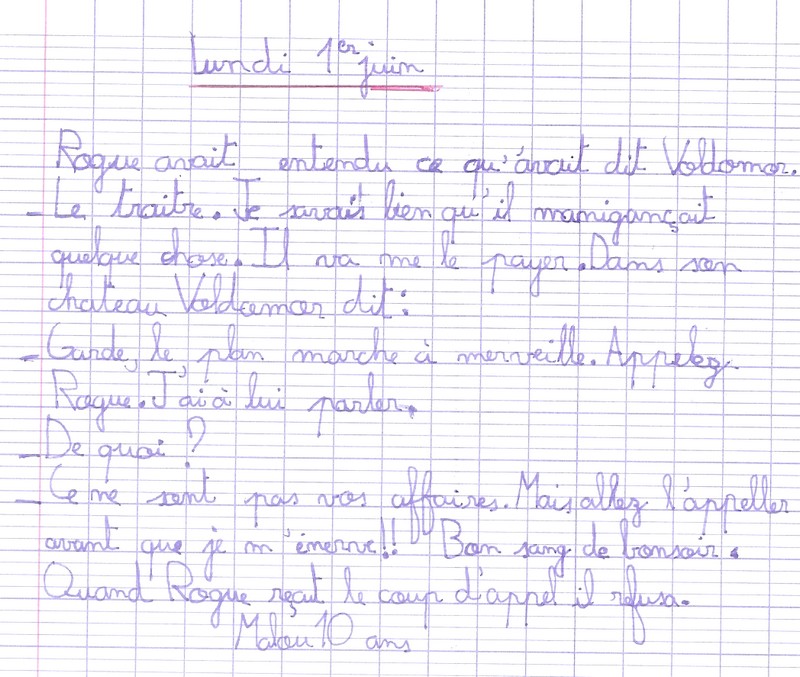 Lundi 1er juin
Rogue avait entendu ce qu'avait dit Voldomor.
_Le traitre. Je savais bien qu'il mamigançait
quelque chose. Il va me le payer. Dans son
chateau Voldomor dit:
_ Garde, le plan marche à merveille. Appelez
Rogue. J'ai à lui parler.
_De quoi ?
_Ce ne sont pas vos affaires. Mais allez l'appeller
avant que je m'énerve!! Bon sang de bonsoir.
Quand Rogue reçut le coup d'appel il refusa.
Malou 10 ans